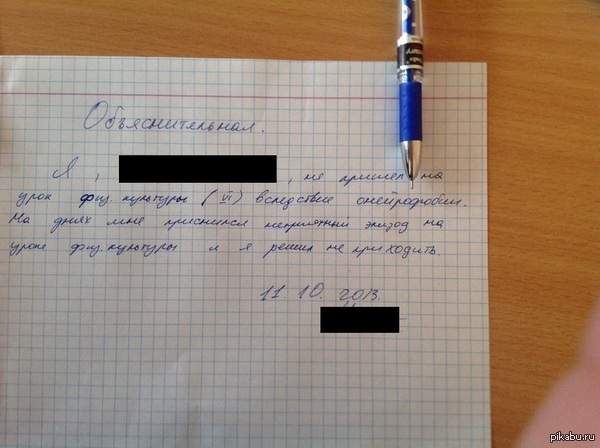 Объяснительная.
Я, , не пришел на
урок физ. культуры (VI) вследствие онейрофобии.
На днях мне приснился неприятный эпизод на
уроке физ. культуры и я решил не приходить.
11. 10. 2013.
pikabu.ru